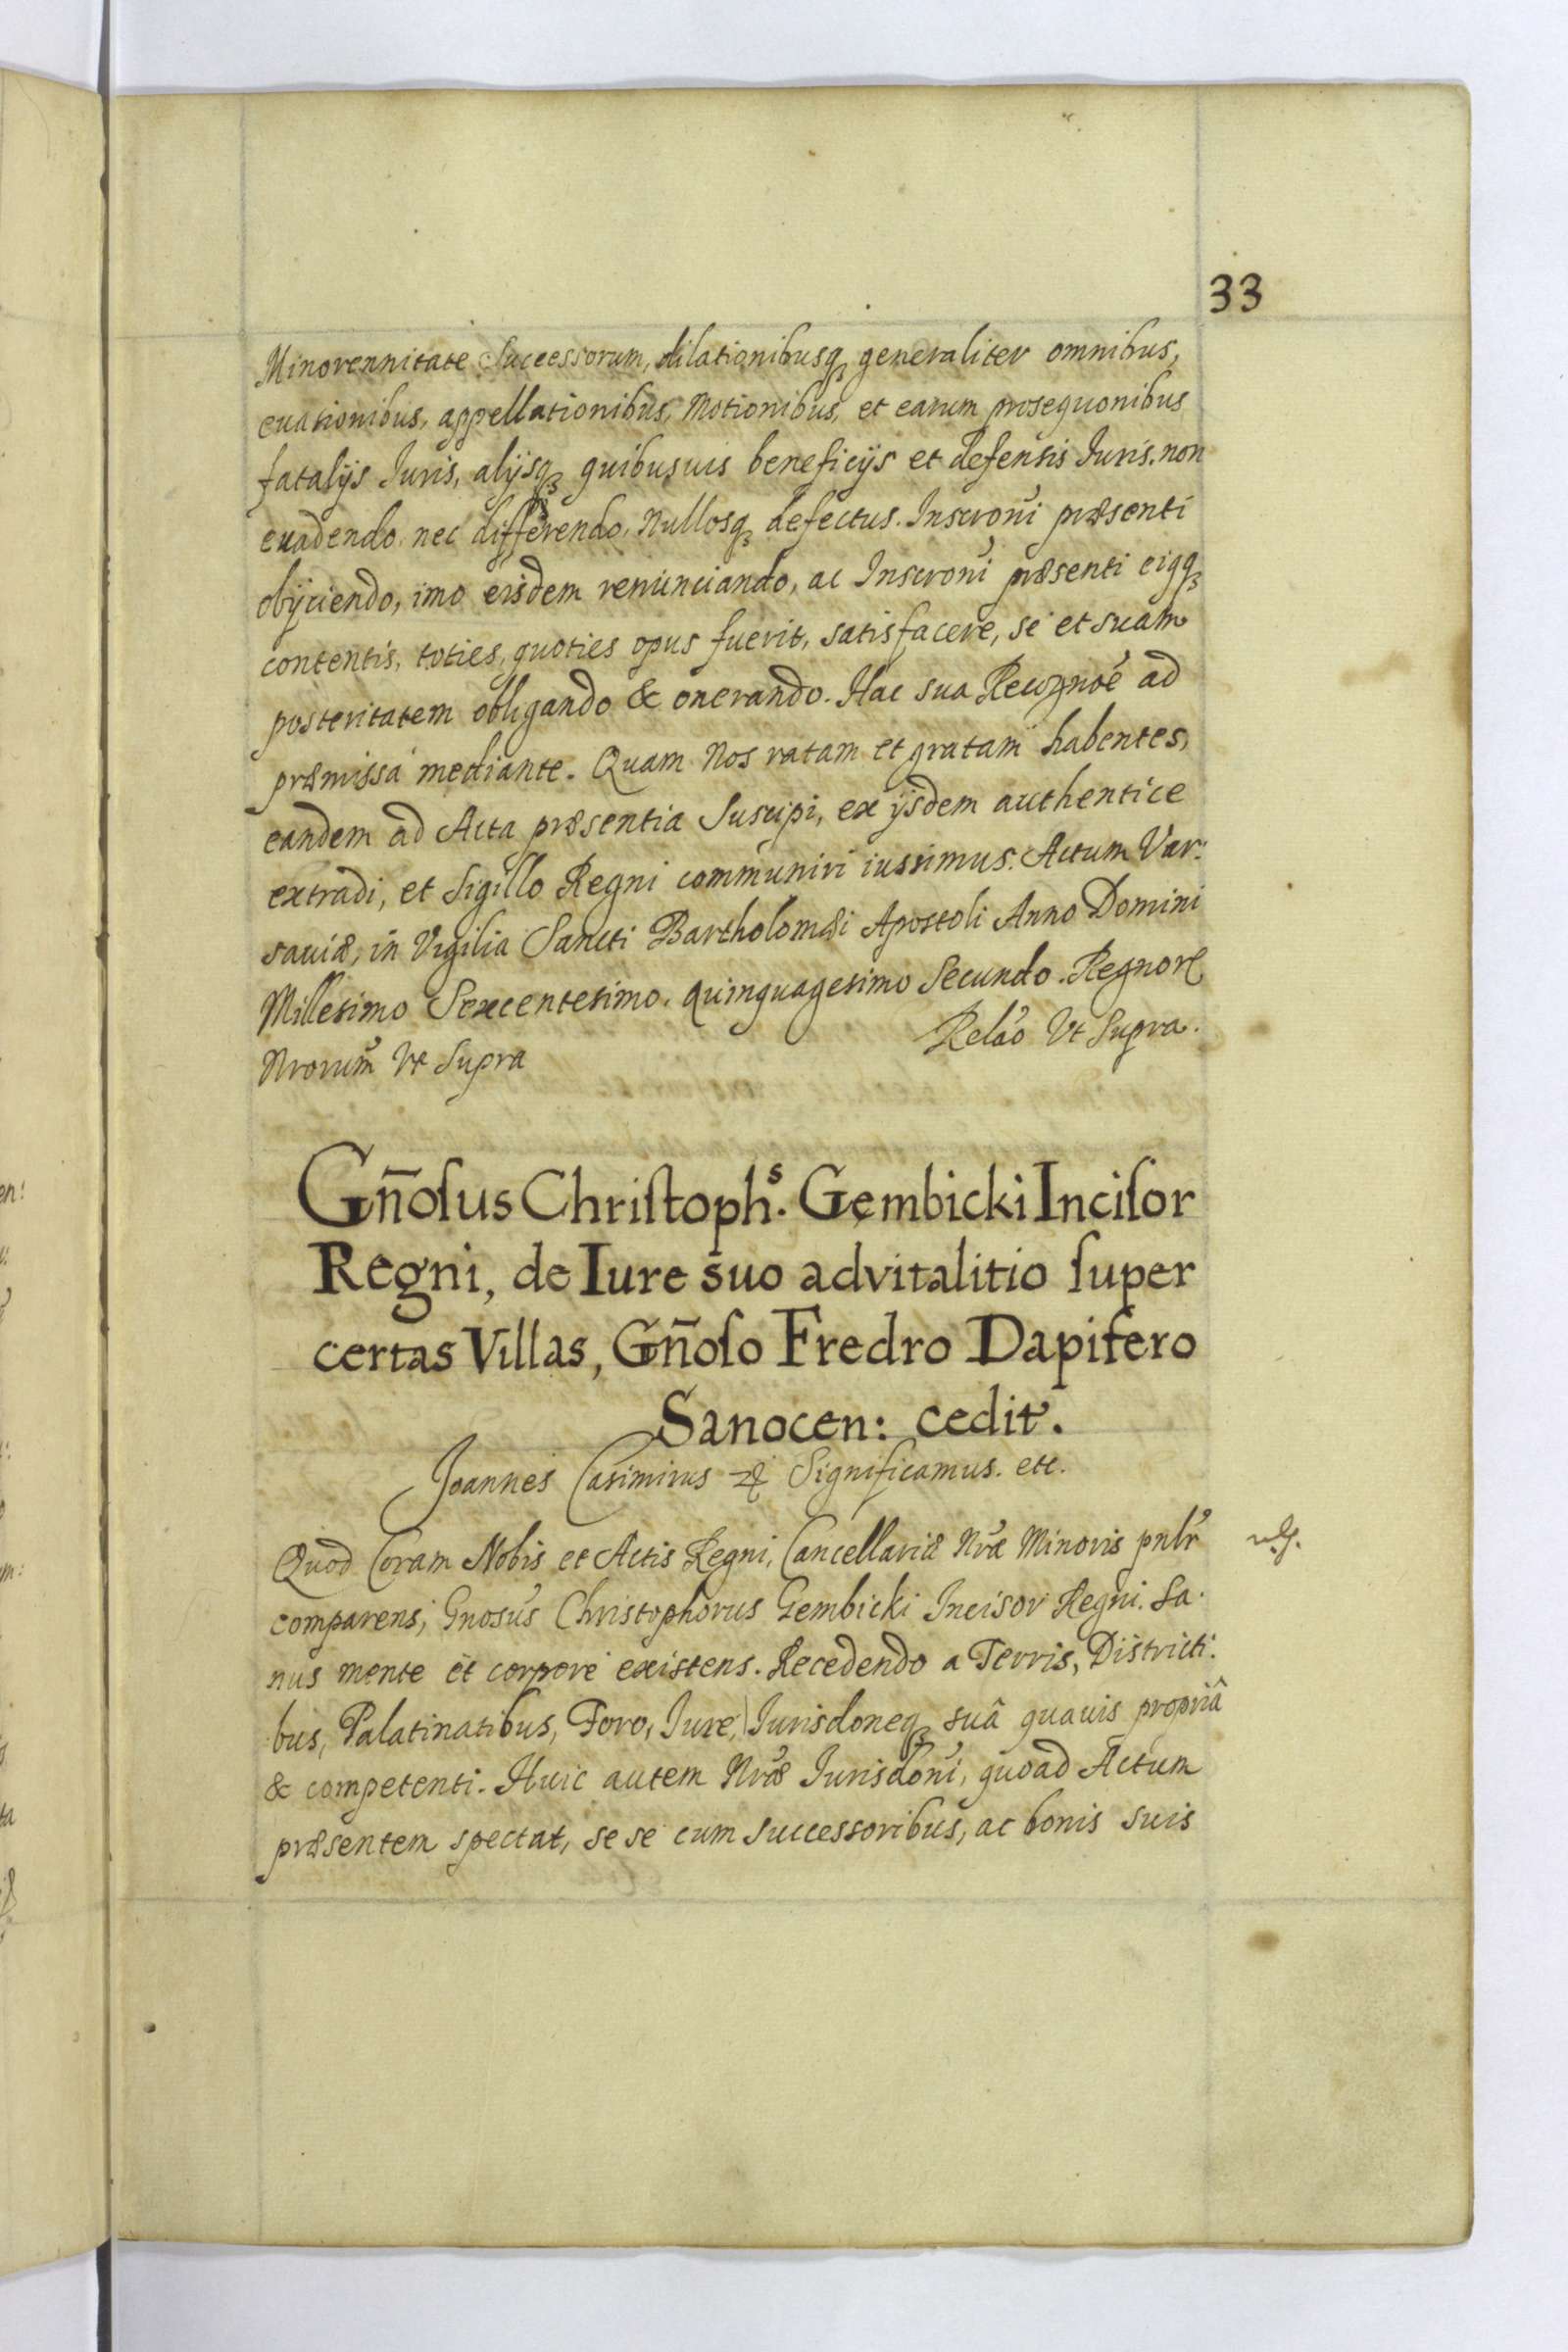 33
Minorennitate Successorum, dilationibusq₃ generaliter omnibus,
euationibus, appellationibus, Motionibus, et earum prosequonibus
fatalijs Iuris, alijsq₃ quibusuis beneficijs et defensis Iuris, non
euadendo, nec differendo, Nullosq₃ defectus. Inscroni præsenti
obijciendo, imo eisdem renunciando, ac Inscroni præsenti eiqq₃
contentis, toties, quoties opus fuerit, satisfacere, se et suam
posteritatem obligando & onerando. Hac sua Recognoé ad
præmissa mediante. Quam Nos ratam et gratam habentes,
eandem ad Acta præsentia Suscipi, ex ijsdem authentice
extradi, et Sigillo Regni communiri iussimus. Actum Var:
sauiæ, in Vigilia Sancti Bartholomæi Apostoli Anno Domini
Millesimo Sexcentesimo. quinquagesimo Secundo. Regnorꝭ
Nrorum Vt Supra Relão Vt Supra.
Gn̄oſus Chriſtophˢ. Gembicki Inciſor
Regni, de Iure suo advitalitio ſuper
certas Villas, Gn̄oſo Fredro Dapifero
Sanocen: cedit.
Joannes Casimirus Significamus. etc.
Quod Coram Nobis et Actis Regni, Cancellariæ Nræ Minoris pnlr
comparens, Gnosus Christophorus Gembicki Incisor Regni. Sa.
nus mente et corpore existens. Recedendo a Terris, Districti:
bus, Palatinatibus, Foro, Iure, Iurisdoneq₃ suâ quauis propriâ
& competenti. Huic autem Nræ Iurisdoni, quoad Actum
præsentem spectat, se se cum successoribus, ac bonis suis